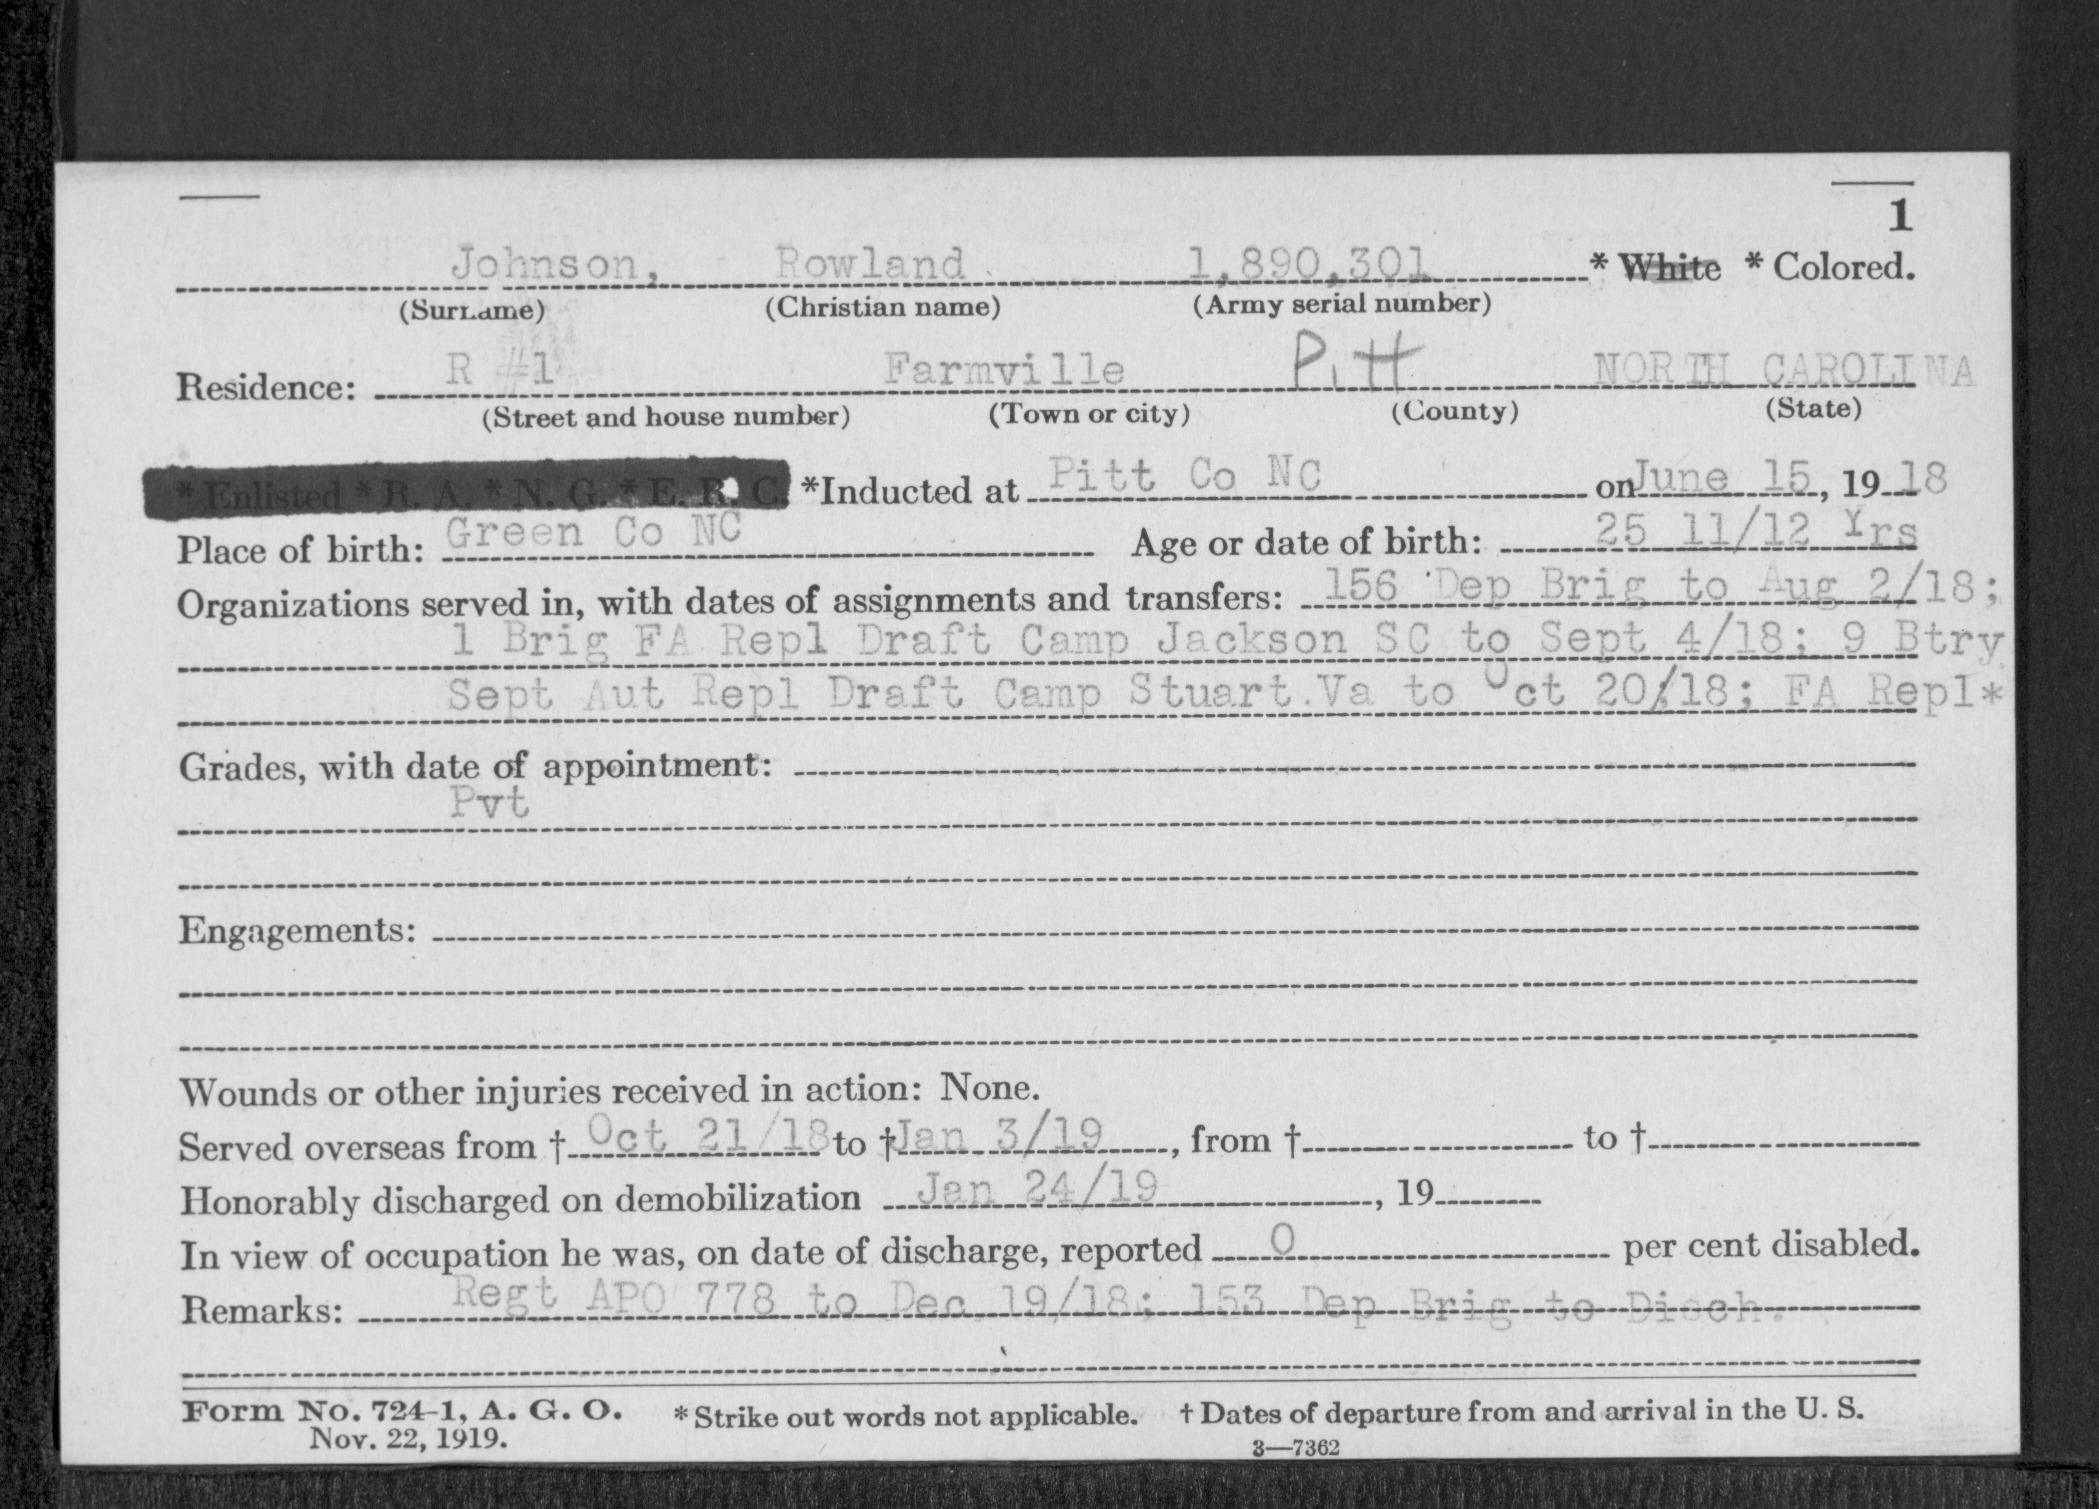 1
Johnson, Rowland 1,890,301 * White * Colored.
(Surname) (Christian name) (Army serial number)
Residence: R #1 Farmville Pitt NORTH CAROLINA
(Street and house number) (Town or city) (County) (State)
* Enlisted * R. A. * N. G. * E. R. C. *Inducted at Pitt Co NC on June 15, 1918
Place of birth: Green Co NC Age or date of birth: 25 11/12 Yrs
Organizations served in, with dates of assignments and transfers: 156 Dep Brig to Aug 2/18;
1 Brig FA Repl Draft Camp Jackson SC to Sept 4/18; 9 Btry
Sept Aut Repl Draft Camp Stuart.Va to Oct 20/18; FA Repl*
Grades, with date of appointment:
Pvt
Engagements:
Wounds or other injuries received in action: None.
Served overseas from † Oct 21/18 to † Jan 3/19, from † to †
Honorably discharged on demobilization Jan 24/19, 19
In view of occupation he was, on date of discharge, reported 0 per cent disabled.
Remarks: Regt APO 778 to Dec 19/18; 153 Dep Brig to Disch.
Form No. 724-1, A. G. O. * Strike out words not applicable. † Dates of departure from and arrival in the U. S.
Nov. 22, 1919. 3—7362